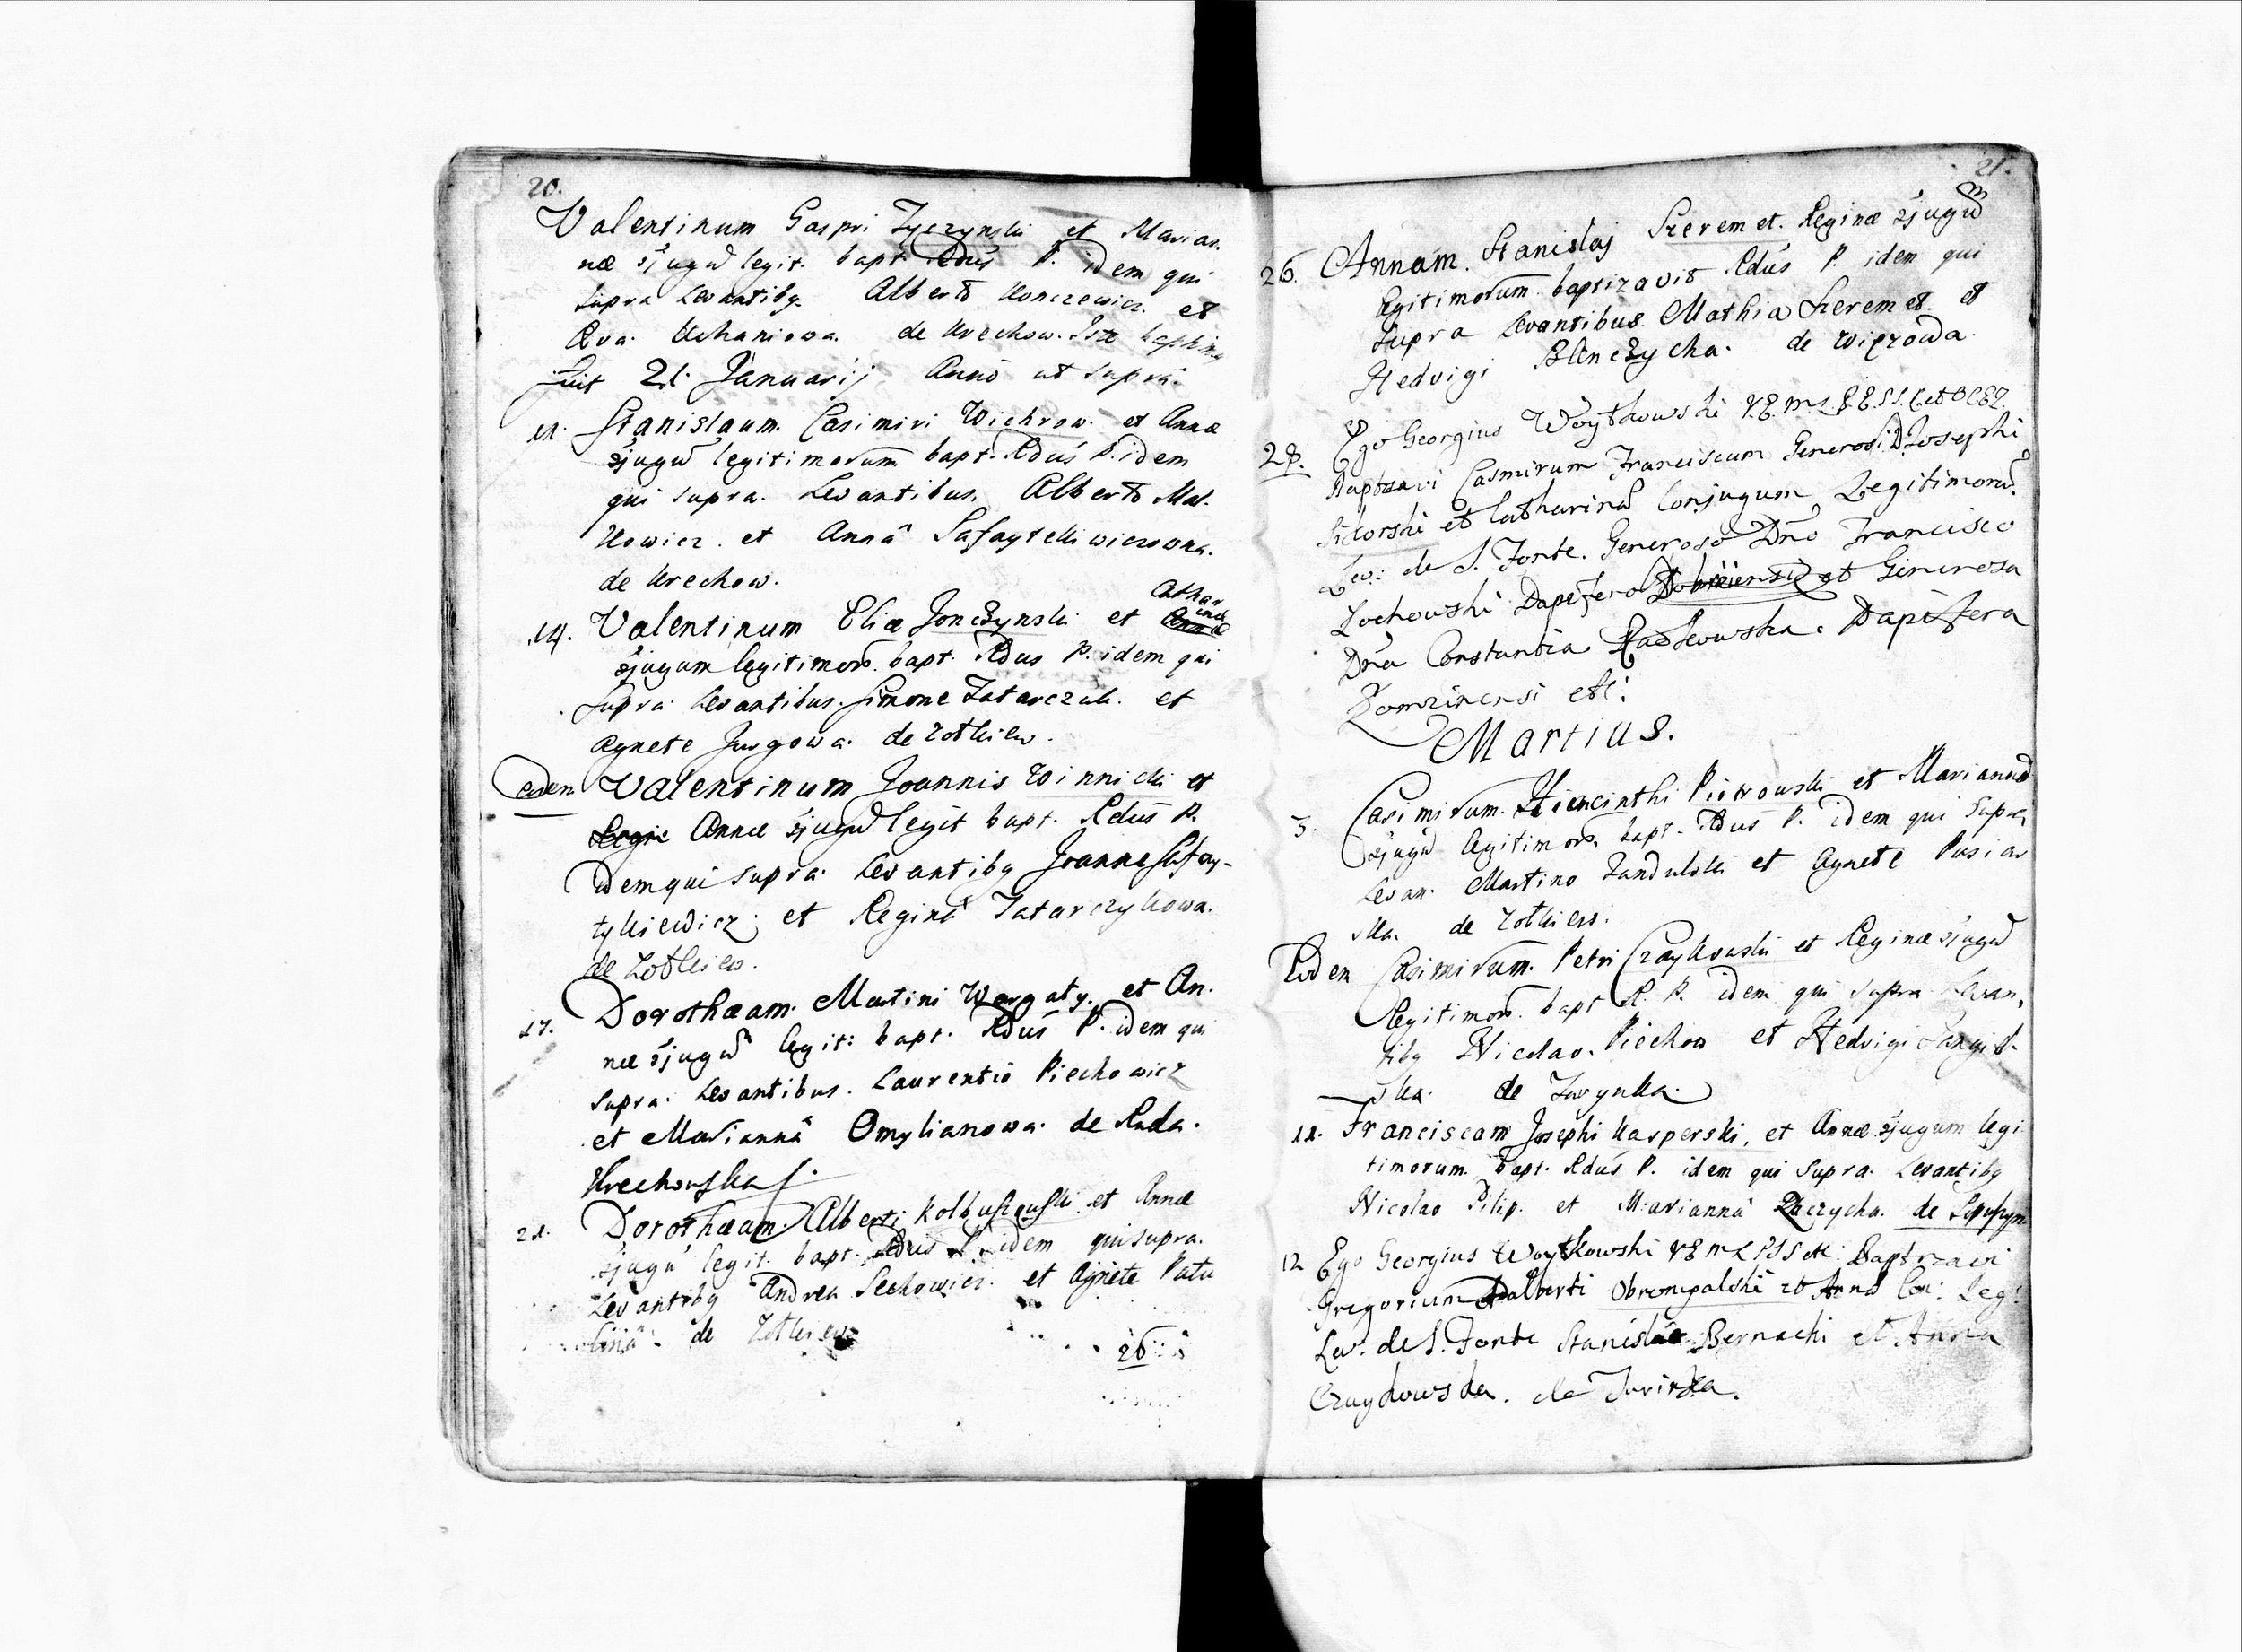 20.
Valentinum Gaspri Tyczynski et Marian.
næ cjugu legit. bapt. Rdus P. idem qui
supra Levantibg. Alberto Konczewicz. et
Eva. de Krechow. Iste
fuit 21. Januarij Anno ut supra.
11. Stanislaum. Casimiri Wichrow. et Annæ
cjugu legitimorum bapt. Rdus P. idem
qui supra. Levantibus. Alberto Mal.
Kowicz. et Annâ
de Krechow.
14. Valentinum Eliæ Jonczynski et Cathar
inæ Annæ
cjugum legitimor. bapt. Rdus P. idem qui
supra Levantibus. Simone Tatarczuk. et
Agnete Jurgowa. de Zotkiew.
Eadem Valentinum Joannis Winnicki et
Annæ cjugu legit bapt. Rdus P.
idem qui supra Levantibg Joanne Safay-
tykiewicz. et Reginâ Tatarczykowa.
de Zotkiew.
17. Dorothæam. Martini Wargaty. et An.
næ cjugu legit: bapt. Rdus P. idem qui
supra. Levantibus. Laurentio Piechowicz
et Mariannâ Omylianowa. de Ruda.
Krechowska
21. Dorothæam. Alberti Kolbuszouski et Annæ
cjugu legit. bapt. Rdus P. idem qui supra.
Levantibg Andrea Sechowicz. et Agnete Patu
de Zotkiew
26
21.
26. Annam. Stanislaj Szeremet. Reginæ cjugu
legitimorum baptizavit Rdus P. idem qui
supra Levantibus. Mathia Szeremet. et
Hedvigi Blinczycha. de Wiązowa.
28. Ego Georgius Woytkowski
Baptizavi Casmirum Franciscum Generosi D Josephi
Sikorski et Catharina Conjugum Legitimoru.
Lev: de S. Fonte. Generoso Dño Francisco
Zochowski Dapifero et Generosa
Dña Constantia Dapifera
Łomzinensi etc:
Martius.
3. Casimirum. Hiacinthi Piotrouski et Mariannæ
cjugu legitimor. bapt. Rdus P. idem qui supra
Levan. Martino Zandulski et Agnete Pasiar
ska. de Zotkiew.
Eodem Casimirum. Petri Czaykouski et Reginæ cjugu
legitimor. bapt R. P. idem qui supra Levan,
tibg Nicolao. Piechow et Hedvigi
ska. de Turynka.
11. Franciscam Josephi Kasperski, et Annæ cjugum legi
timorum. bapt. Rdus P. idem qui supra. Levantibg
Nicolao Pilip. et Mariannâ
12 Ego Georgius Woytkowski Baptizavi
Gregorium Adalberti Obrempalski et Anna Con: Leg:
Lev: de S. Fonte Stanislao Bernacki et Anna
Czaykowska. de Turinka.